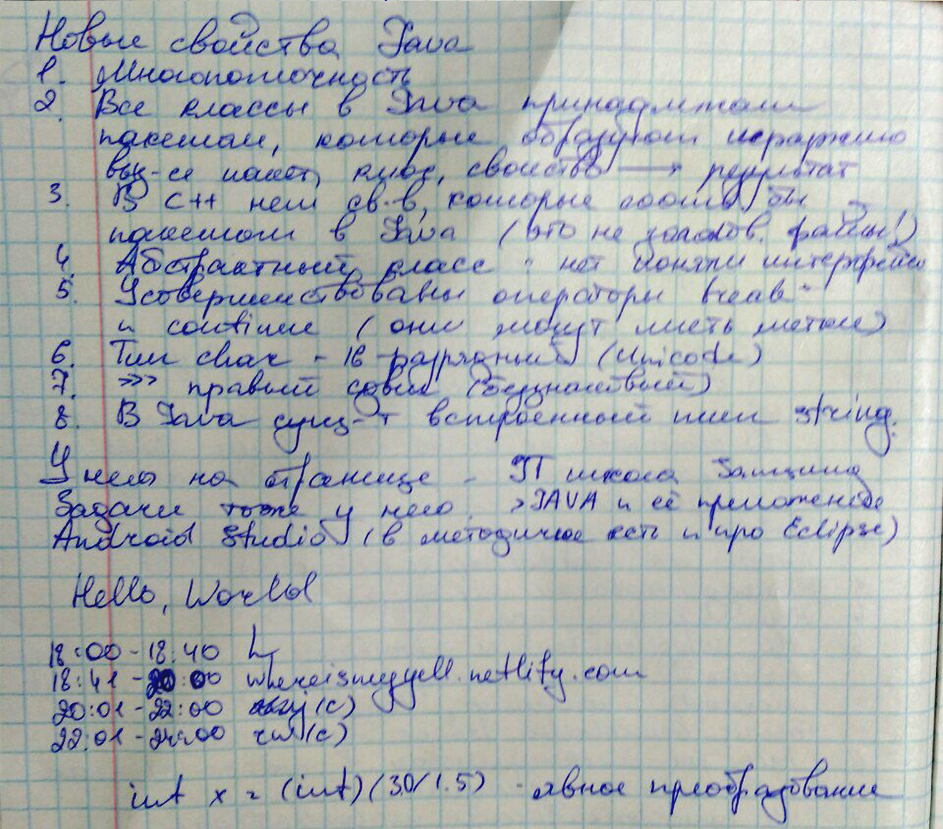 Новые свойства Java
1. Многопоточность
2. Все классы в Java принадлежат
пакетам, которые образуют иерархию
вып-ся пакет, класс, свойства → результат
3. В C++ нет св-в, которые соотв. бы
пакетам в Java (это не заголов. файлы!)
4. Абстрактный класс : нет понятия интерфейс
5. Усовершенствованы операторы break
и continue (они могут иметь метки)
6. Тип char - 16-разрядный (Unicode)
7. >>> правый сдвиг (беззнаковый)
8. В Java сущ-т встроенный тип string.
У него на странице - IT школа
Задачи тоже у него. >JAVA и её приложение
Android Studio (в методичке есть и про Eclipse)
Hello, World
18:00 - 18:40
18:41 - 20:00 whereismyyell.netlify.com
20:01 - 22:00 (c)
22:01 - 24:00 (c)
int x = (int)(3.0/1.5) - явное преобразование